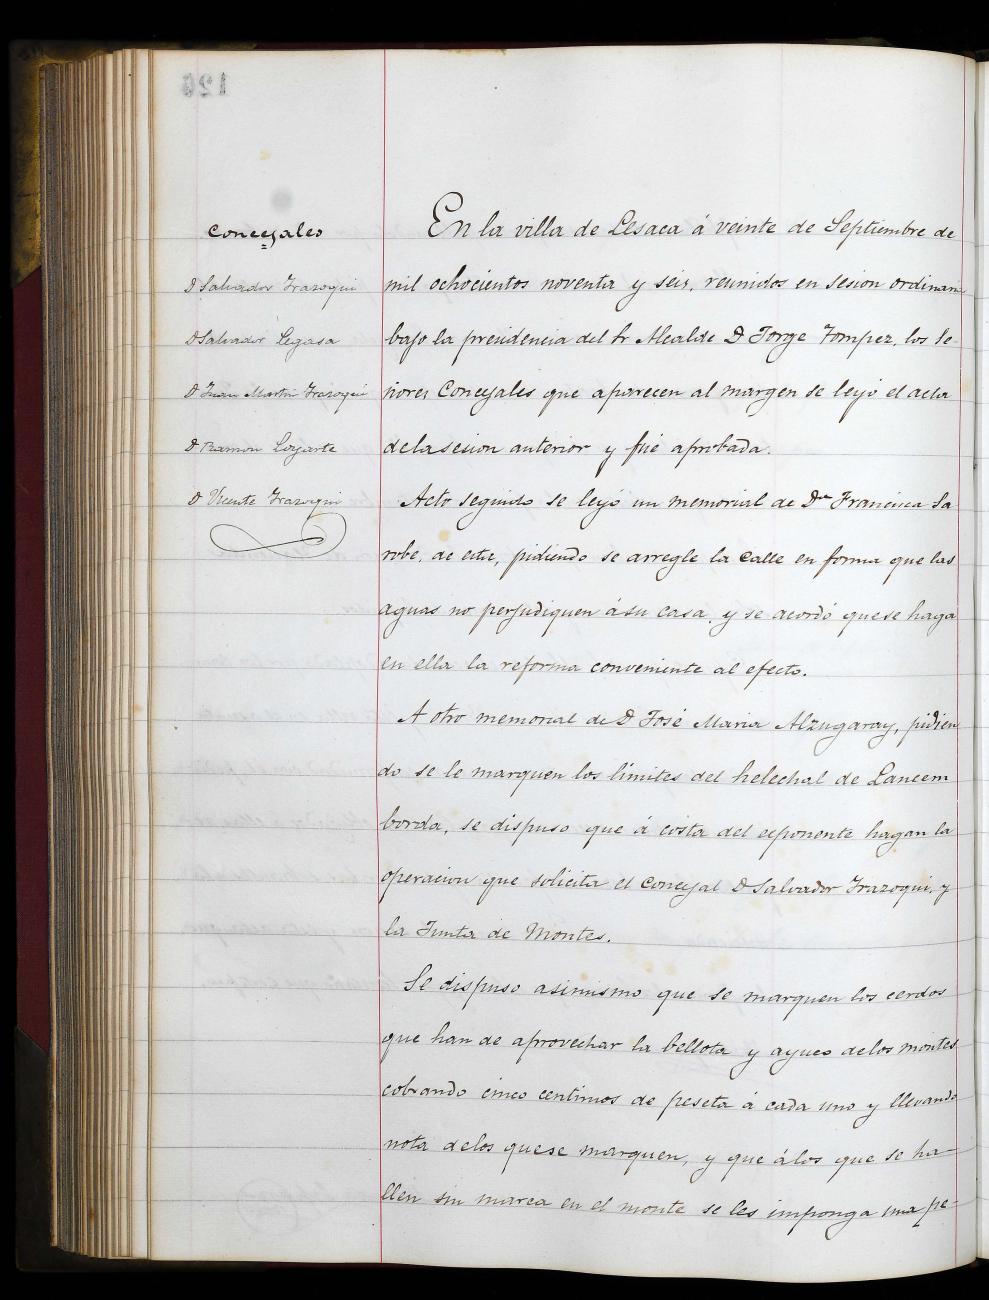 Concejales
D Salvador Irazoqui
D Salvador Legasa
D Juan Martin Irazoqui
D Ramon Loyarte
D Vicente Irazoqui
En la villa de Lesaca á veinte de Septiembre de
mil ochocientos noventa y seis, reunidos en sesion ordinaria
bajo la presidencia del Sr Alcalde D Jorge Tompez, los Se-
ñores Concejales que aparecen al margen se leyó el acta
de la sesion anterior y fué aprobada.
Acto seguido se leyó un memorial de Dª Francisca Sa
robe, de esta, pidiendo se arregle la calle en forma que las
aguas no perjudiquen á su casa, y se acordó que se haga
en ella la reforma conveniente al efecto.
A otro memorial de D José Maria Alzugaray, pidien
do se le marquen los límites del helechal de Lancem
borda, se dispuso que á costa del esponente hagan la
operacion que solicita el concejal D Salvador Irazoqui, y
la Junta de Montes.
Se dispuso asimismo que se marquen los cerdos
que han de aprovechar la bellota y ayuco de los montes
cobrando cinco centimos de peseta á cada uno y llevando
nota de los que se marquen, y que á los que se ha-
llen sin marca en el monte se les imponga una pe-